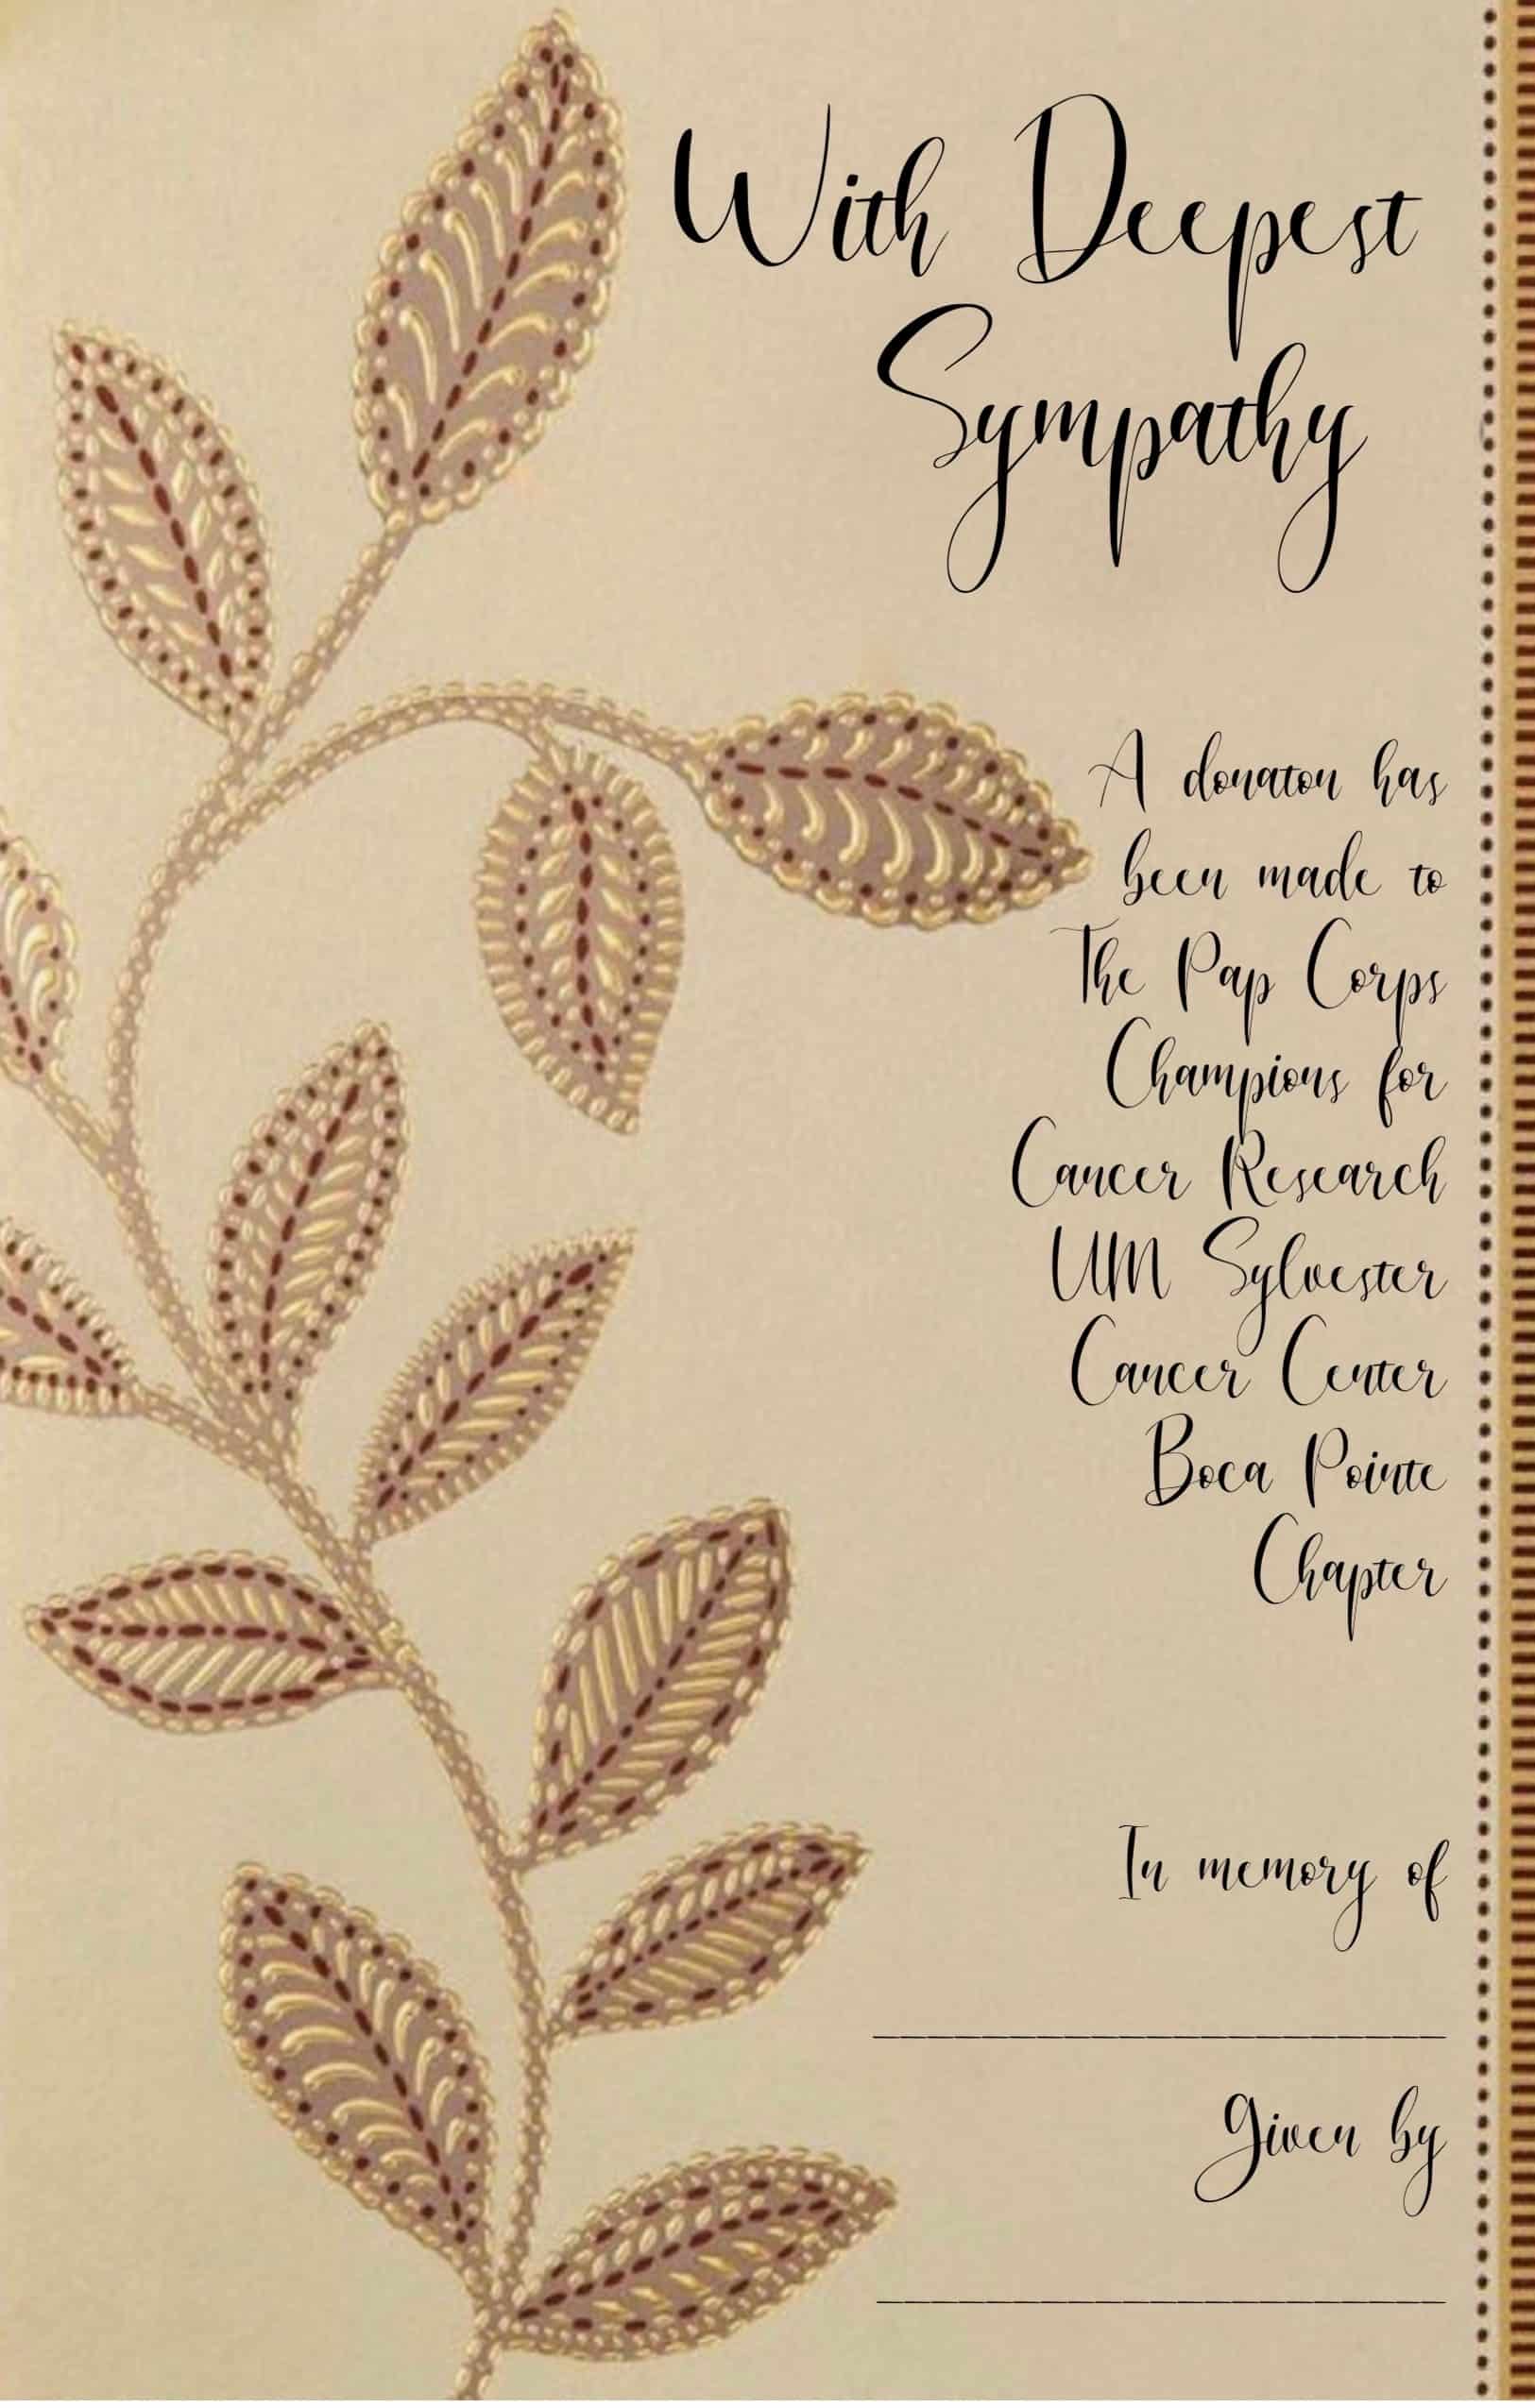 With Deepest
Sympathy
A donaton has
been made to
The Pap Corps
Champions for
Cancer Research
UM Sylvester
Cancer Center
Boca Pointe
Chapter
In memory of
Given by